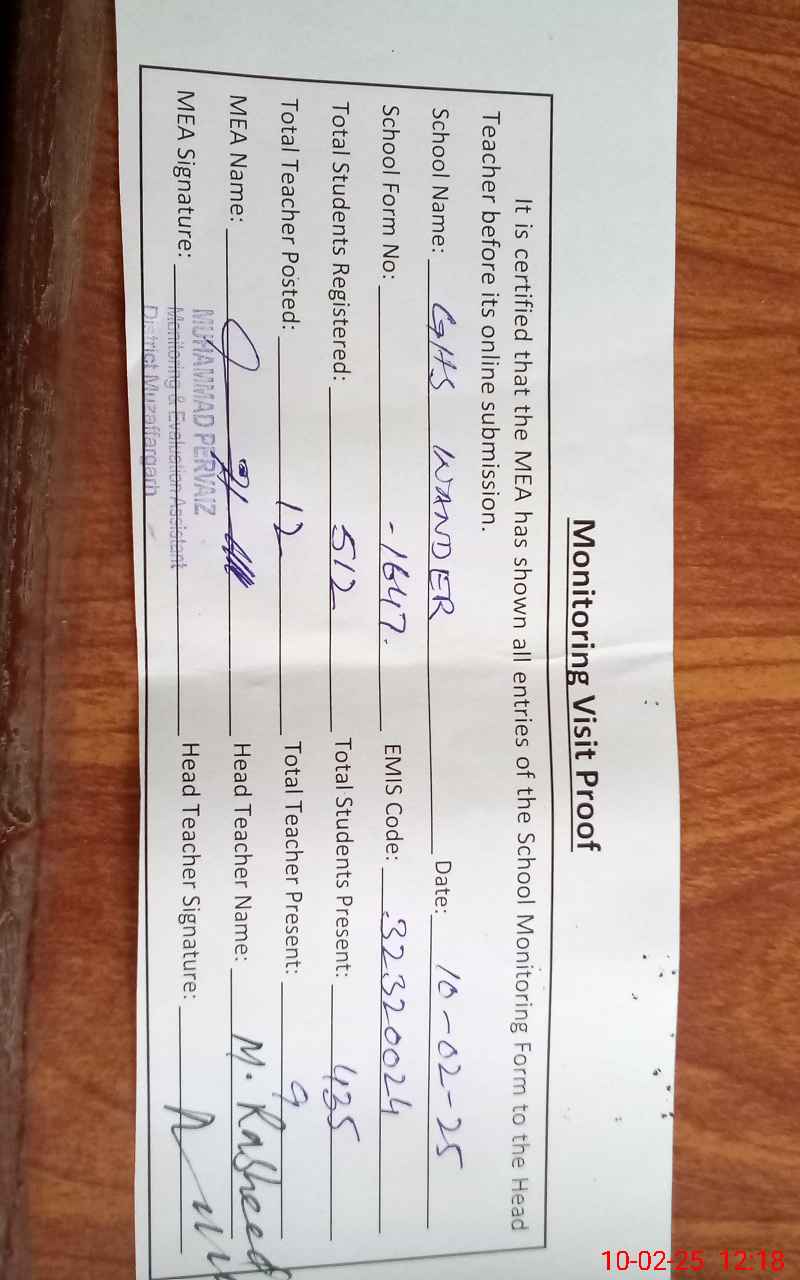 Monitoring Visit Proof
It is certified that the MEA has shown all entries of the School Monitoring Form to the Head
Teacher before its online submission.
School Name: GHS WANDER Date: 10-02-25
School Form No: -1647. EMIS Code: 32320024
Total Students Registered: 512 Total Students Present: 435
Total Teacher Posted: 12 Total Teacher Present: 9
MEA Name: Head Teacher Name: M. Rasheed
MEA Signature: Head Teacher Signature:
MUHAMMAD PERVAIZ
Monitoring & Evaluation Assistant
District Muzaffargarh
10-02-25 12:18